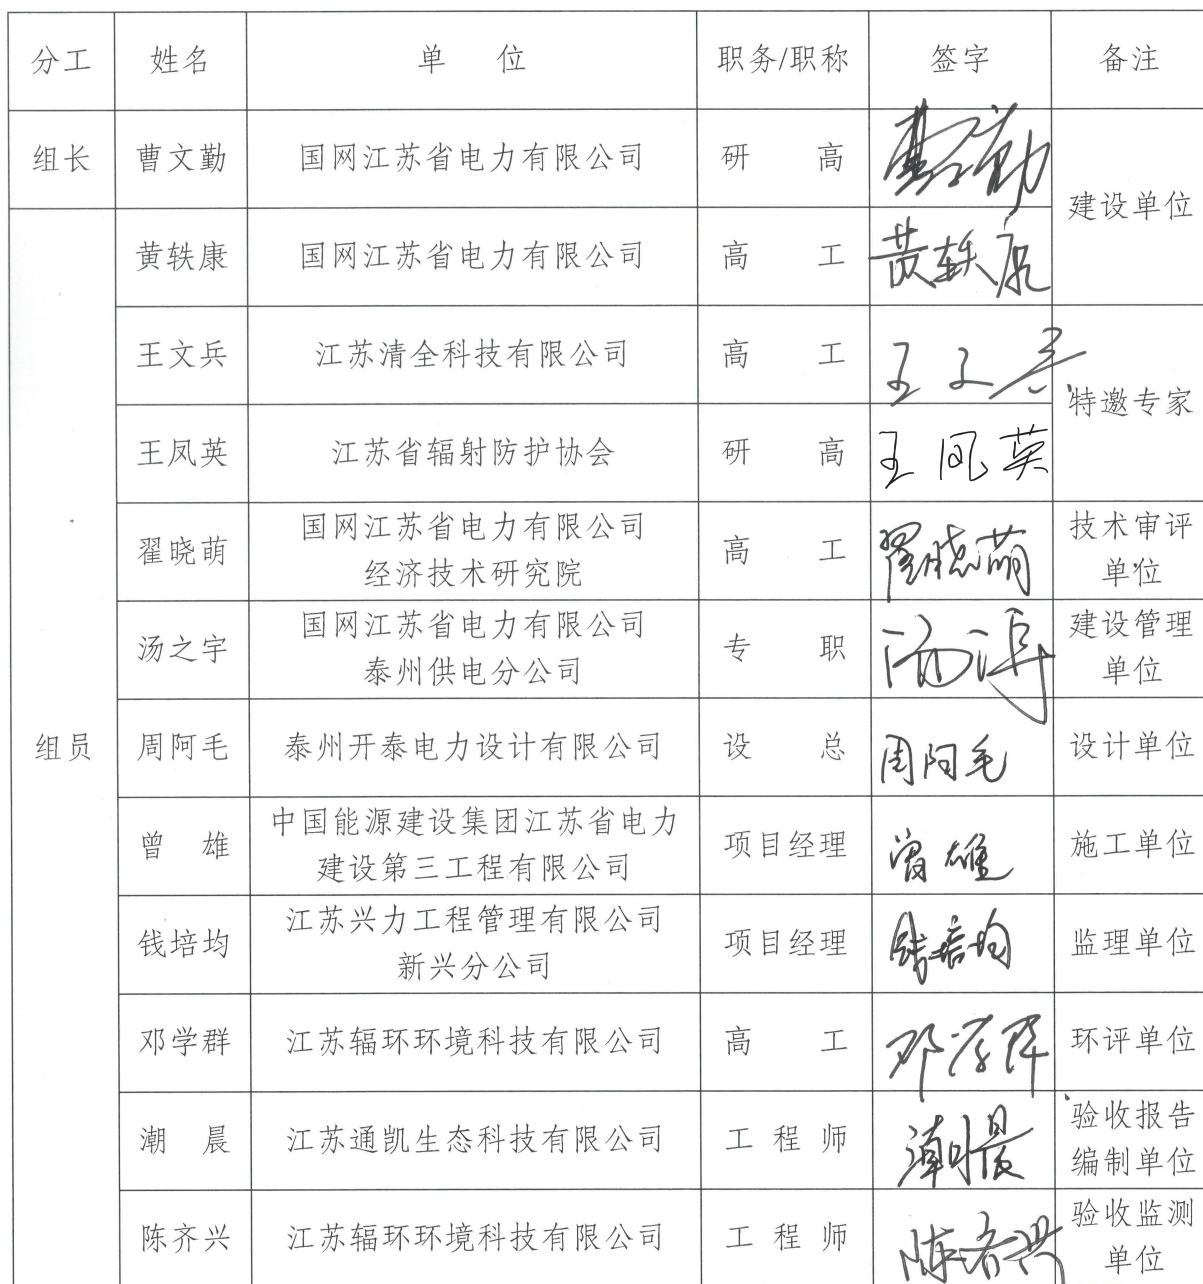 分工 姓名 单 位 职务/职称 签字 备注
组长 曹文勤 国网江苏省电力有限公司 研 高 曹文勤 建设单位
组员 黄轶康 国网江苏省电力有限公司 高 工 黄轶康
王文兵 江苏清全科技有限公司 高 工 王文兵 特邀专家
王凤英 江苏省辐射防护协会 研 高 王凤英
翟晓萌 国网江苏省电力有限公司 高 工 翟晓萌 技术审评
经济技术研究院 单位
汤之宇 国网江苏省电力有限公司 专 职 建设管理
泰州供电分公司 单位
周阿毛 泰州开泰电力设计有限公司 设 总 周阿毛 设计单位
曾 雄 中国能源建设集团江苏省电力 项目经理 曾雄 施工单位
建设第三工程有限公司
钱培均 江苏兴力工程管理有限公司 项目经理 钱培均 监理单位
新兴分公司
邓学群 江苏辐环环境科技有限公司 高 工 邓学群 环评单位
潮 晨 江苏通凯生态科技有限公司 工 程 师 潮晨 验收报告
编制单位
陈齐兴 江苏辐环环境科技有限公司 工 程 师 陈齐兴 验收监测
单位